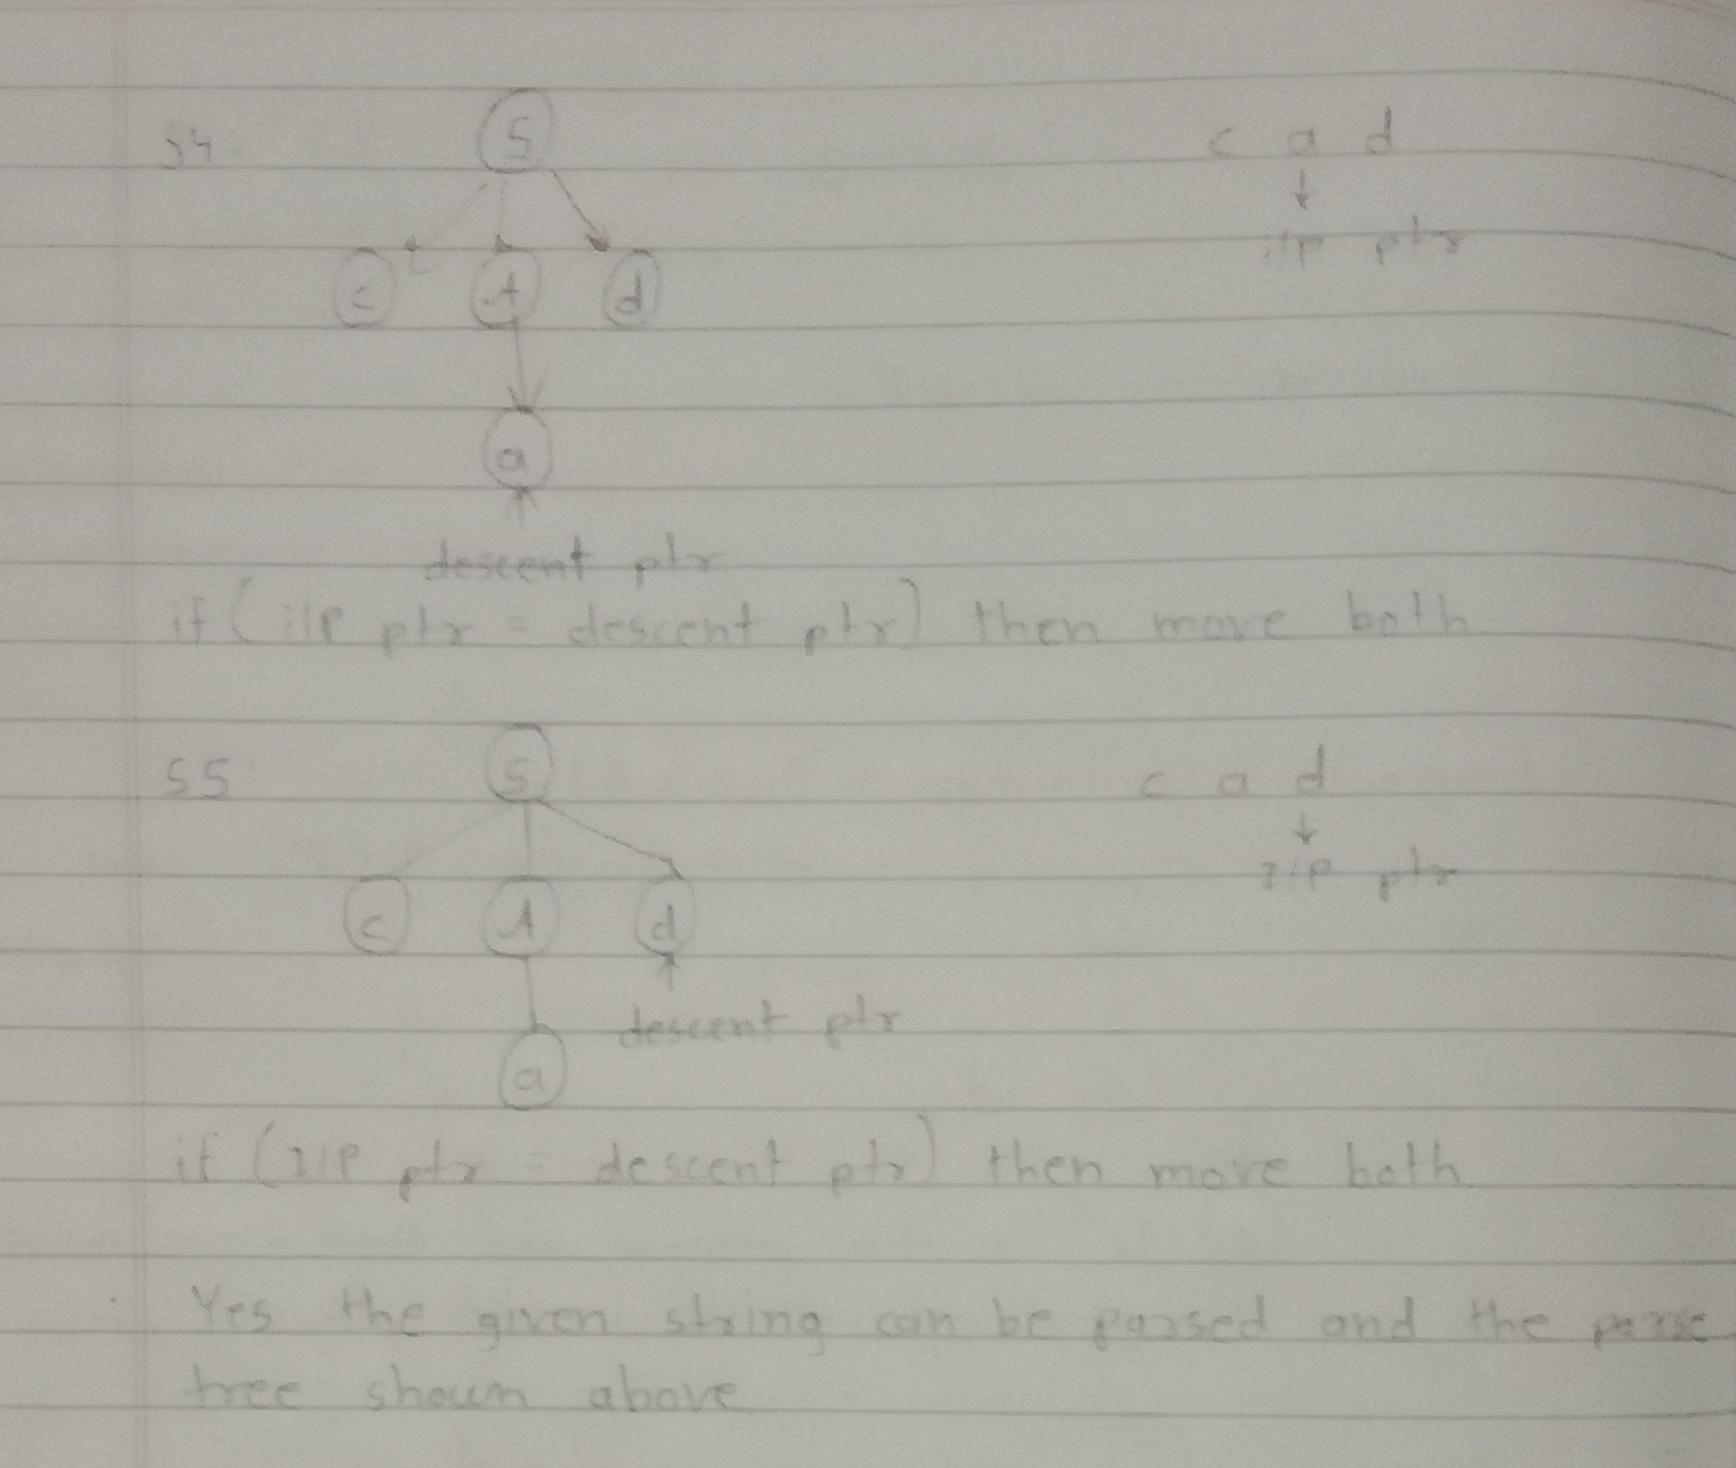 S4. S c a d
i/p ptr
c A d
a
descent ptr
if (i/p ptr = descent ptr) then move both
S5 S c a d
I/P ptr
c A d
descent ptr
a
if (I/P ptr = descent ptr) then move both
Yes the given string can be parsed and the parse
tree shown above